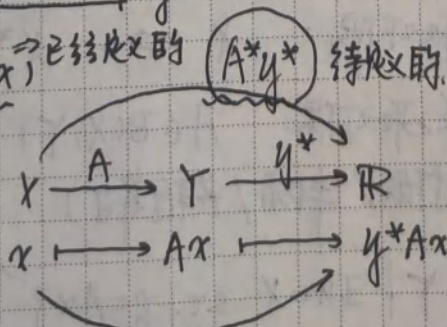 x) ⇒已经定义的 A*y* 待定义的.
X —A→ Y —y*→ ℝ
x ↦ Ax ↦ y*Ax